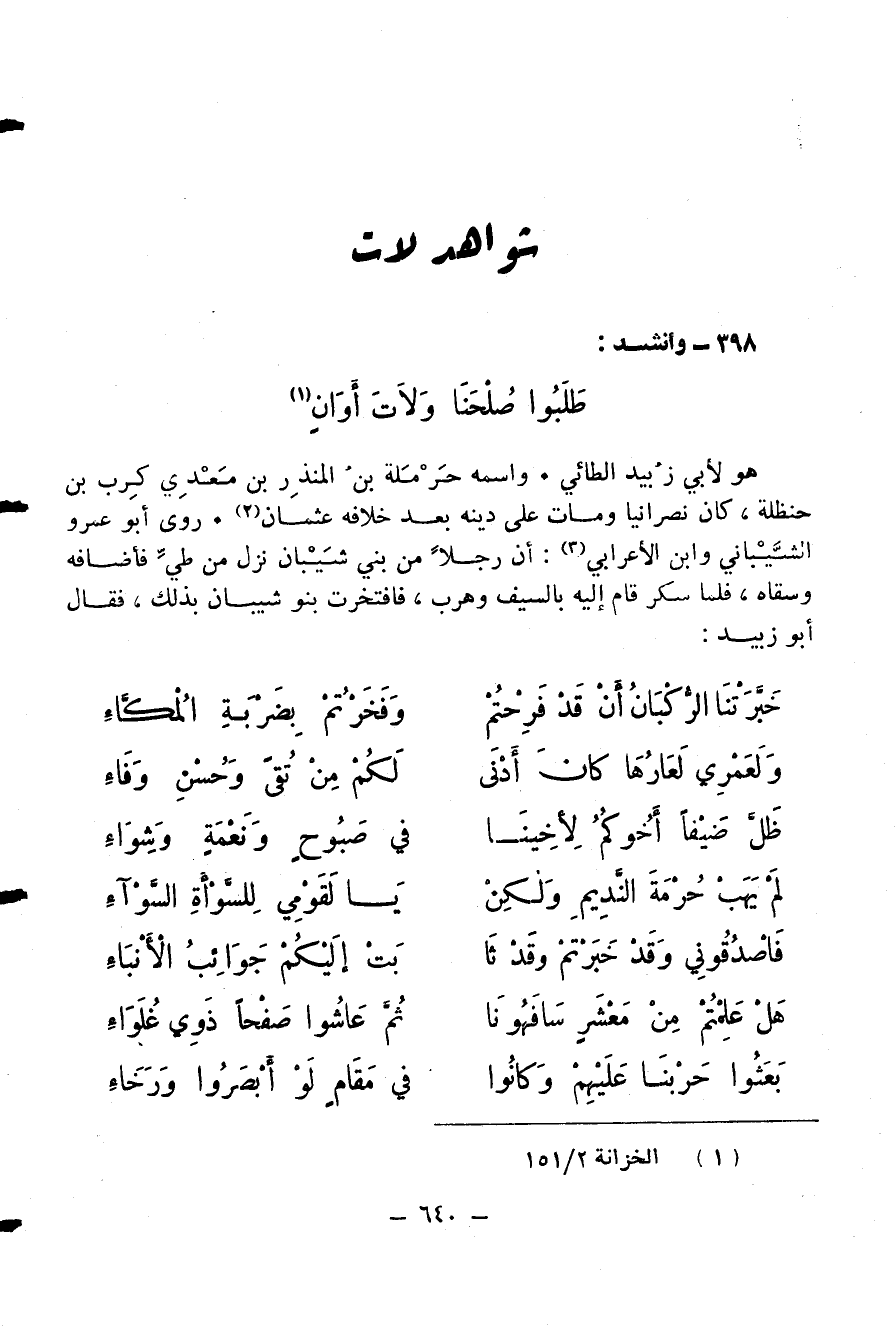 شواهد لات
٣٩٨ – وأنشد :
طَلَبُوا صُلْحَنَا وَلاَتَ أَوَانٍ(١)
هو لأبي زُبيد الطائي . واسمه حَرْمَلة بنُ المنذِر بن مَعْدِي كَرِب بن
حنظلة ، كان نصرانيا ومات على دينه بعد خلافه عثمان(٢) . روى أبو عمرو
الشَّيْباني وابن الأعرابي(٣) : أن رجلاً من بني شَيْبان نزل من طيّ فأضافه
وسقاه ، فلما سكر قام إليه بالسيف وهرب ، فافتخرت بنو شيبان بذلك ، فقال
أبو زبيد :
خَبَّرَتْنَا الرُّكْبَانُ أَنْ قَدْ فَرِحْتُمْ وَفَخَرْتُمْ بِضَرْبَةِ الْمُكَّاءِ
وَلَعَمْرِي لَعَارُهَا كانَ أَدْنَى لَكُمْ مِنْ تُقىً وَحُسْنِ وَفَاءِ
ظَلَّ ضَيْفاً أَخُوكُمُ لِأَخِينَا في صَبُوحٍ وَنَعْمَةٍ وَشِوَاءِ
لَمْ يَهَبْ حُرْمَةَ النَّدِيمِ وَلٰكِنْ يَا لَقَوْمِي لِلسَّوْأَةِ السَّوْآءِ
فَاصْدُقُونِي وَقَدْ خَبَرْتُمْ وقَدْ ثَا بَتْ إِلَيْكُمْ جَوَائِبُ الْأَنْبَاءِ
هَلْ عَلِمْتُمْ مِنْ مَعْشَرٍ سَافَهُونَا ثُمَّ عَاشُوا صَفْحاً ذَوِي غُلَوَاءِ
بَعَثُوا حَرْبَنَا عَلَيْهِمْ وَكَانُوا في مَقَامٍ لَوْ أَبْصَرُوا وَرَخَاءِ
(١) الخزانة ١٥١/٢
– ٦٤٠ –